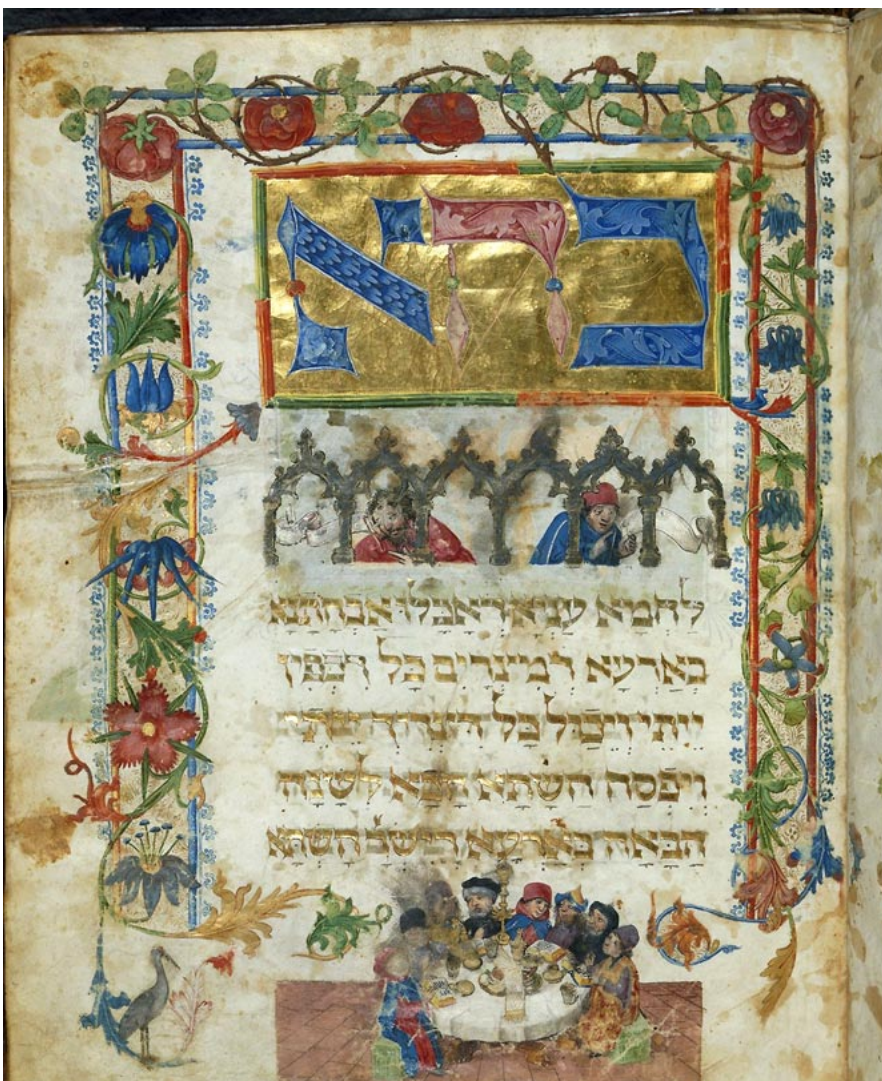 כהא
לחמא עניא דאכלו אבהתנא
בארעא דמיצרים כל דכפין
ייתי וייכול כל דצריך ייתי
ויפסח השתא הכא לשנה
הבאה בארעא דישר השתא